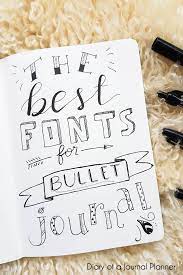 THE
best
FONTS
for
BULLET
journal
Diary of a Journal Planner